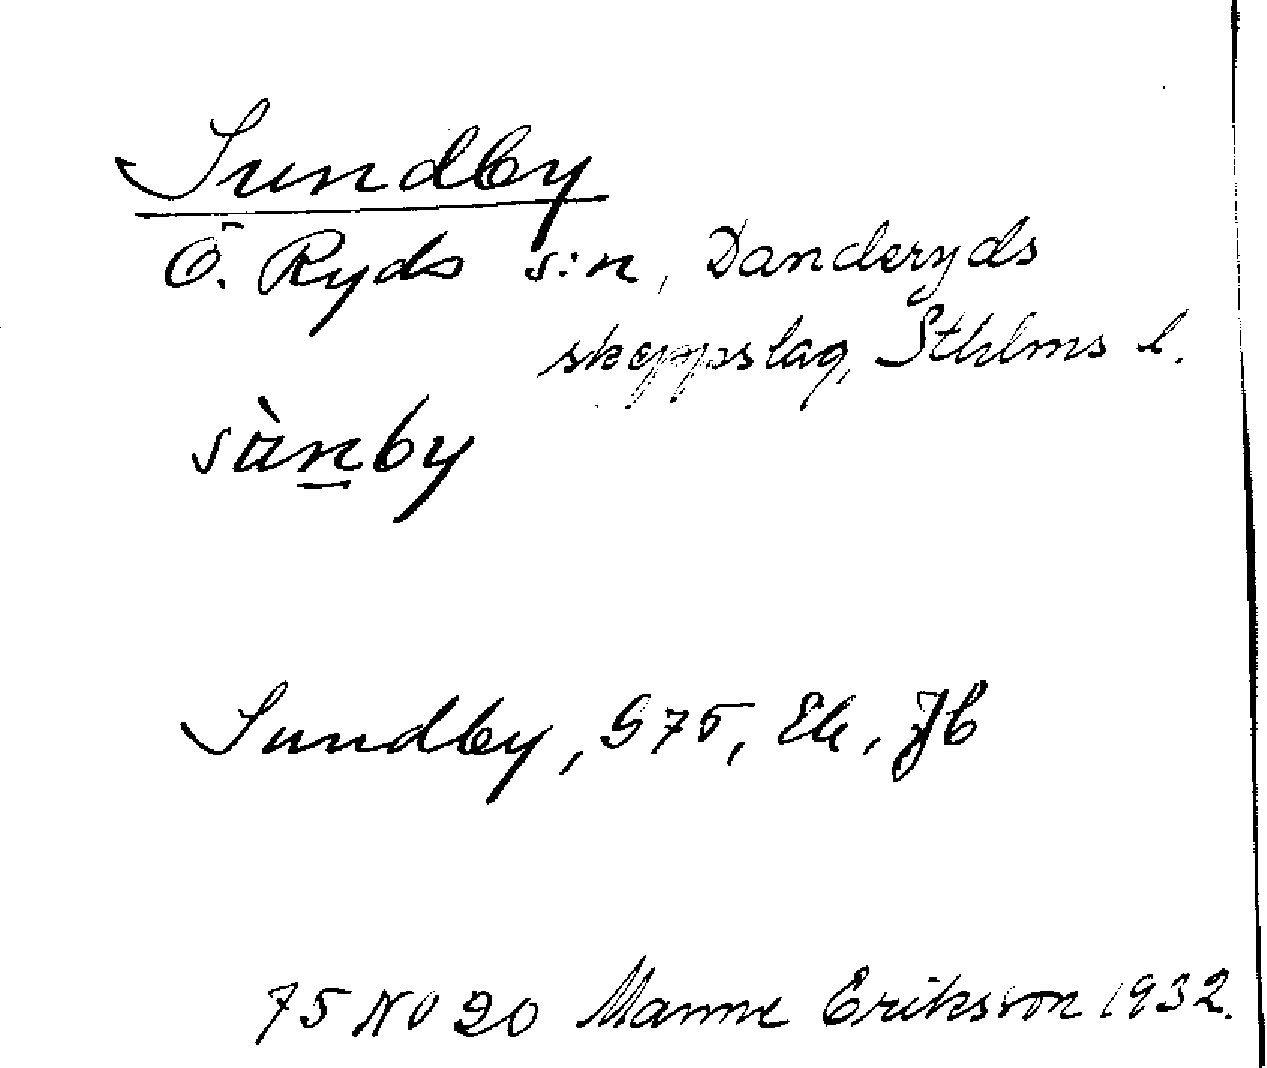 Sundby
Ö. Ryds s:n, Danderyds
skeppslag, Sthlms l.
sùnby
Sundby, G 75, Ek, Jb
75 NO 20 Manne Eriksson 1932.